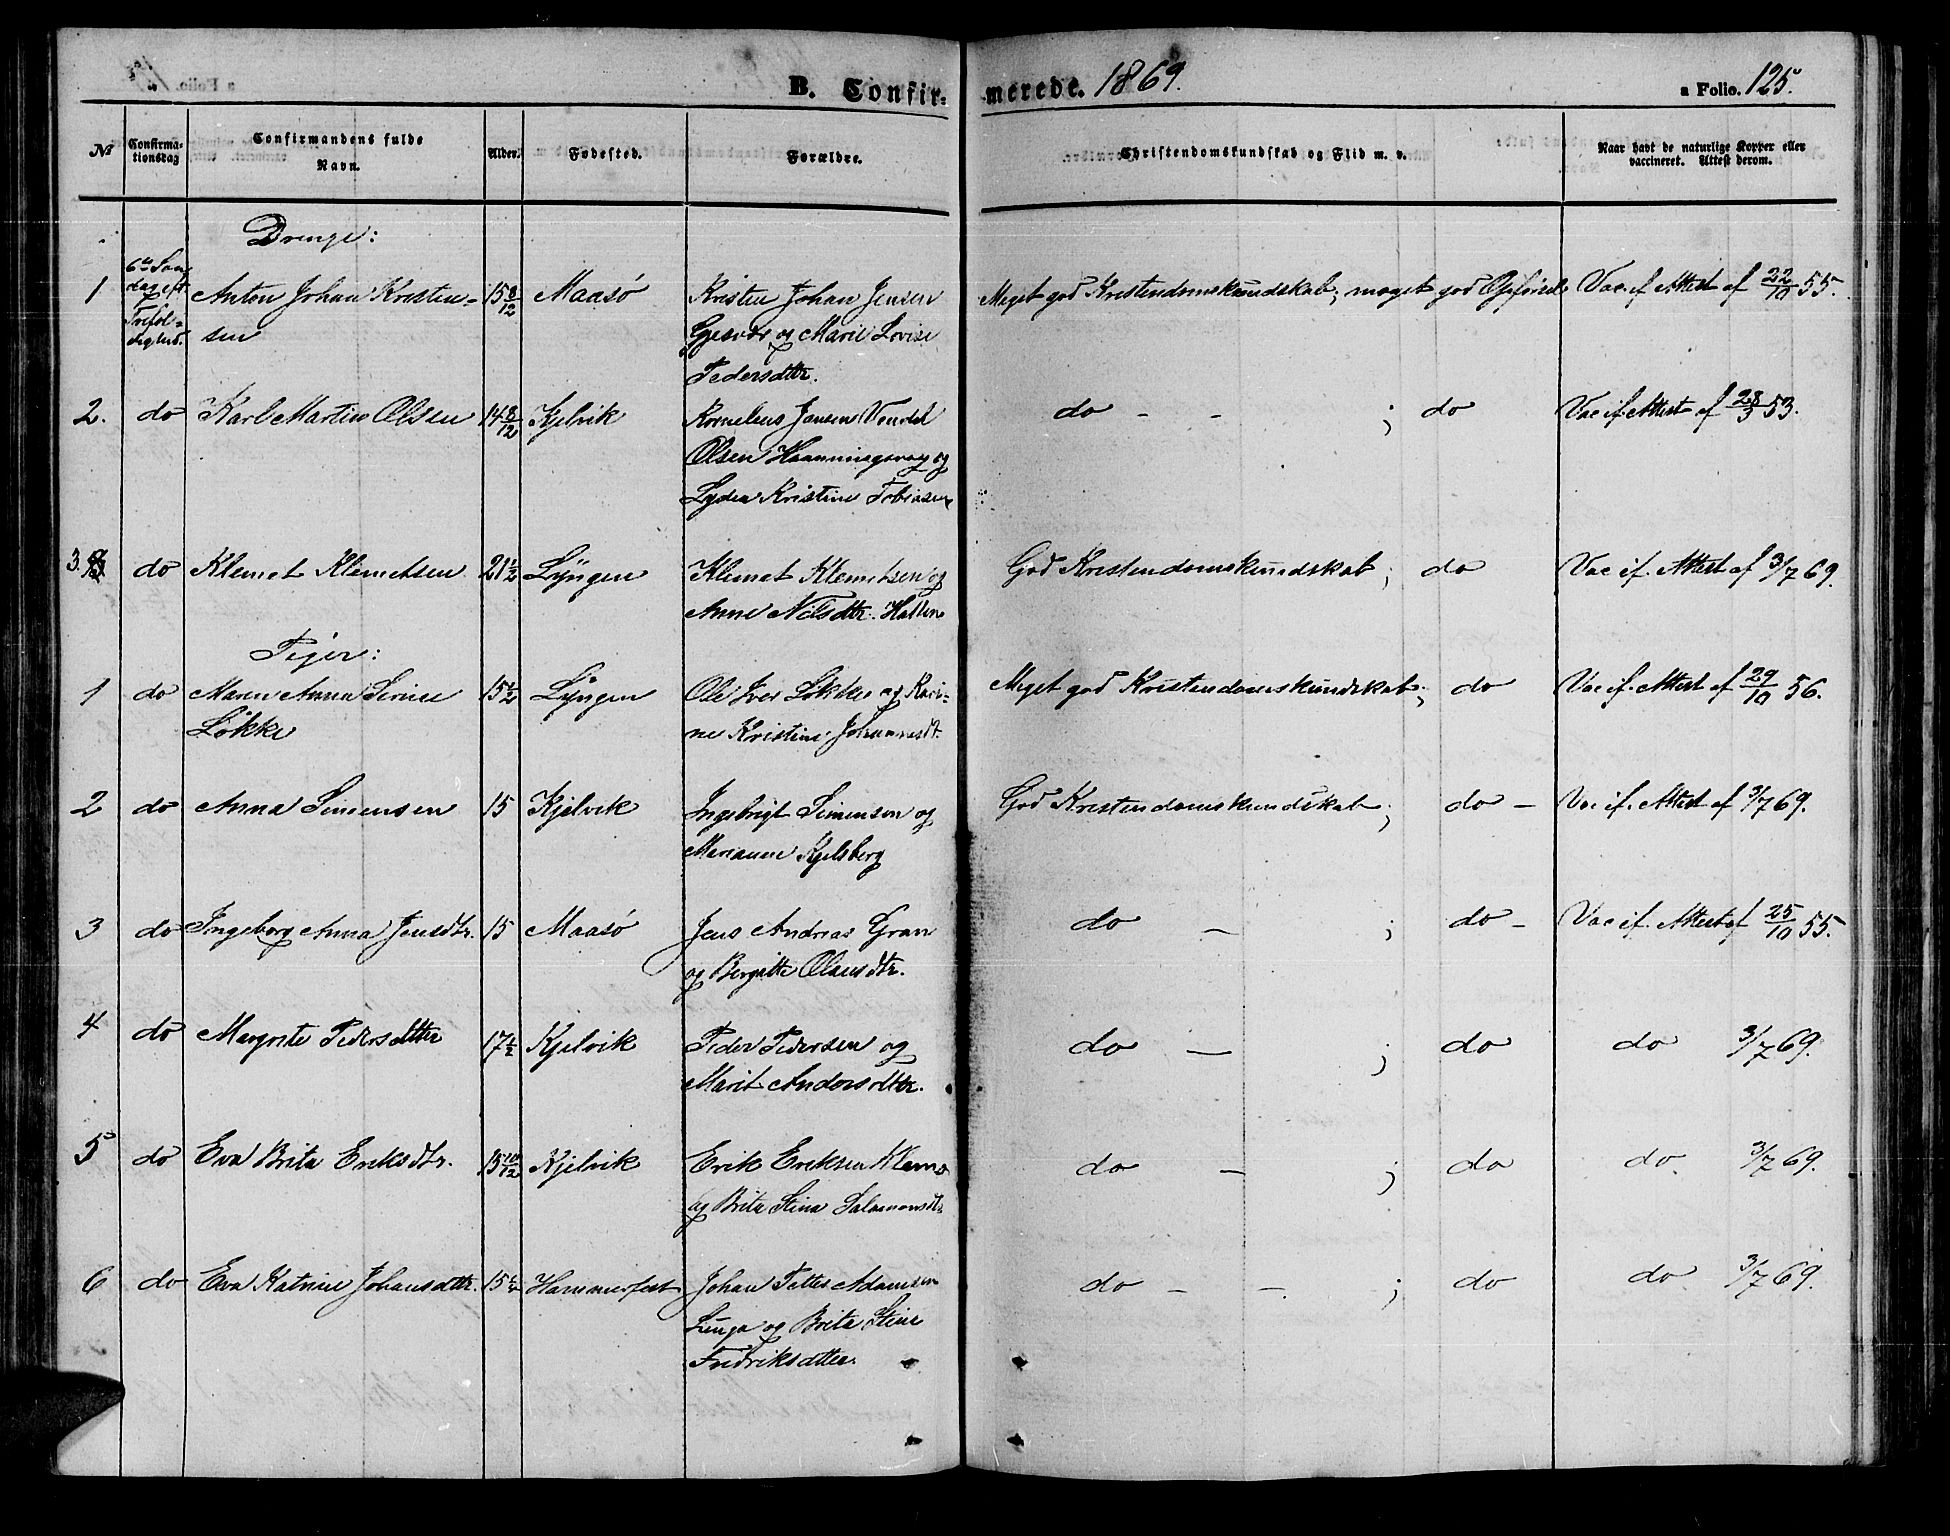 B. Confirmerede. 1869. a Folio. 125.
No Confirmationsdag Confirmandens fulde Navn. Alder. Fødested. Forældre. Christendomskundskab og Flid m. v. Naar havt de naturlige Kopper eller vaccineret. Attest derom.
Drenge:
1 6te Søndag eft. Trefoldighed. Anton Johan Kristensen 15 8/12 Maasø Kristen Johan Jensen Gjesvær og Marie Lovise Pedersdttr. Meget god Kristendomskundskab; meget god Opførsel Vac. if. Attest af 22/10 55.
2. do Karl Martin Olsen 14 8/12 Kjelvik Kornelius Jensen Olsen Honningsvaag og Lydea Kristine Tobiasen do - - ; do Vac if. Attest af 28/3 53.
3. do Klemet Klemetsen 21 1/2 Lyngen Klemet Klemetsen og Anne Nilsdttr. Hatten God Kristendomskundskab; do Vac if. Attest af 3/7 69.
Piger:
1 do Maren Anna Serine Løkke 15 1/2 Lyngen Ole Iver Løkke og Karine Kristine Johannesdt. Meget god Kristendomskundskab; do Vac if. Attest af 29/10 56.
2 do Anna Simensen 15 Kjelvik Ingebrigt Simensen og Marianne Kjelsberg God Kristendomskundskab; do - Vac if. Attest af 3/7 69.
3 do Ingeborg Anna Jensdtr. 15 Maasø Jens Andreas Gran og Bergitte Olausdtr. do - ; do - Vac if. Attest af 25/10 55.
4 do Margrete Pedersdtter 17 1/2 Kjelvik Peder Pedersen og Marit Andersdtter. do - ; do do 3/7 69.
5 do Eva Brita Eriksdtr. 15 10/12 Kjelvik Erik Eriksen Klemo og Brita Stina Salamonsdtr do - ; do do. 3/7 69.
6 do Eva Katrine Johansdttr. 15 1/2 Hammerfest Johan Petter Adamsen Linga og Brita Stine Fredriksdtter. do - - ; do do. 3/7 69.